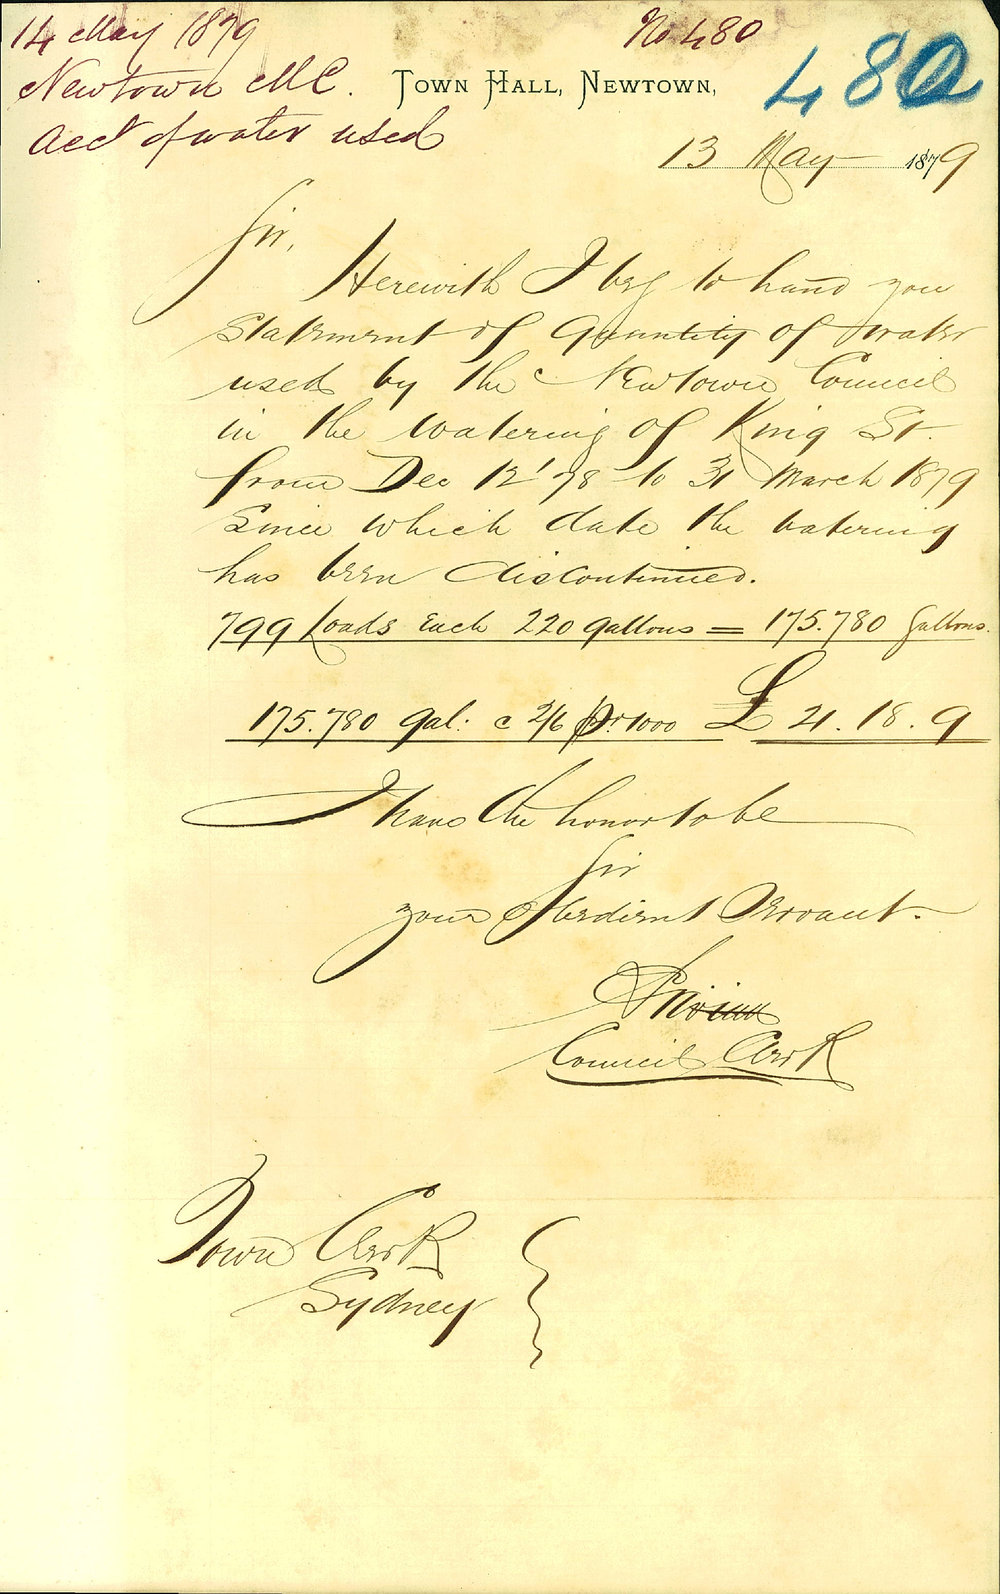 14 May 1879
Newtown M C.
Acct of water used
No 480
480
TOWN HALL, NEWTOWN,
13 May 1879
Sir,
Herewith I beg to hand you
Statement of Quantity of water
used by the Newtown Council
in the watering of King St.
from Dec 12' 78 to 31 March 1879
Since which date the watering
has been discontinued.
799 Loads Each 220 gallons = 175.780 Gallons.
175.780 gal: @ 2/6 pr 1000 £ 21.18.9
I have the honor to be
Sir
your Obedient Servant.
Council Clerk
Town Clerk
Sydney